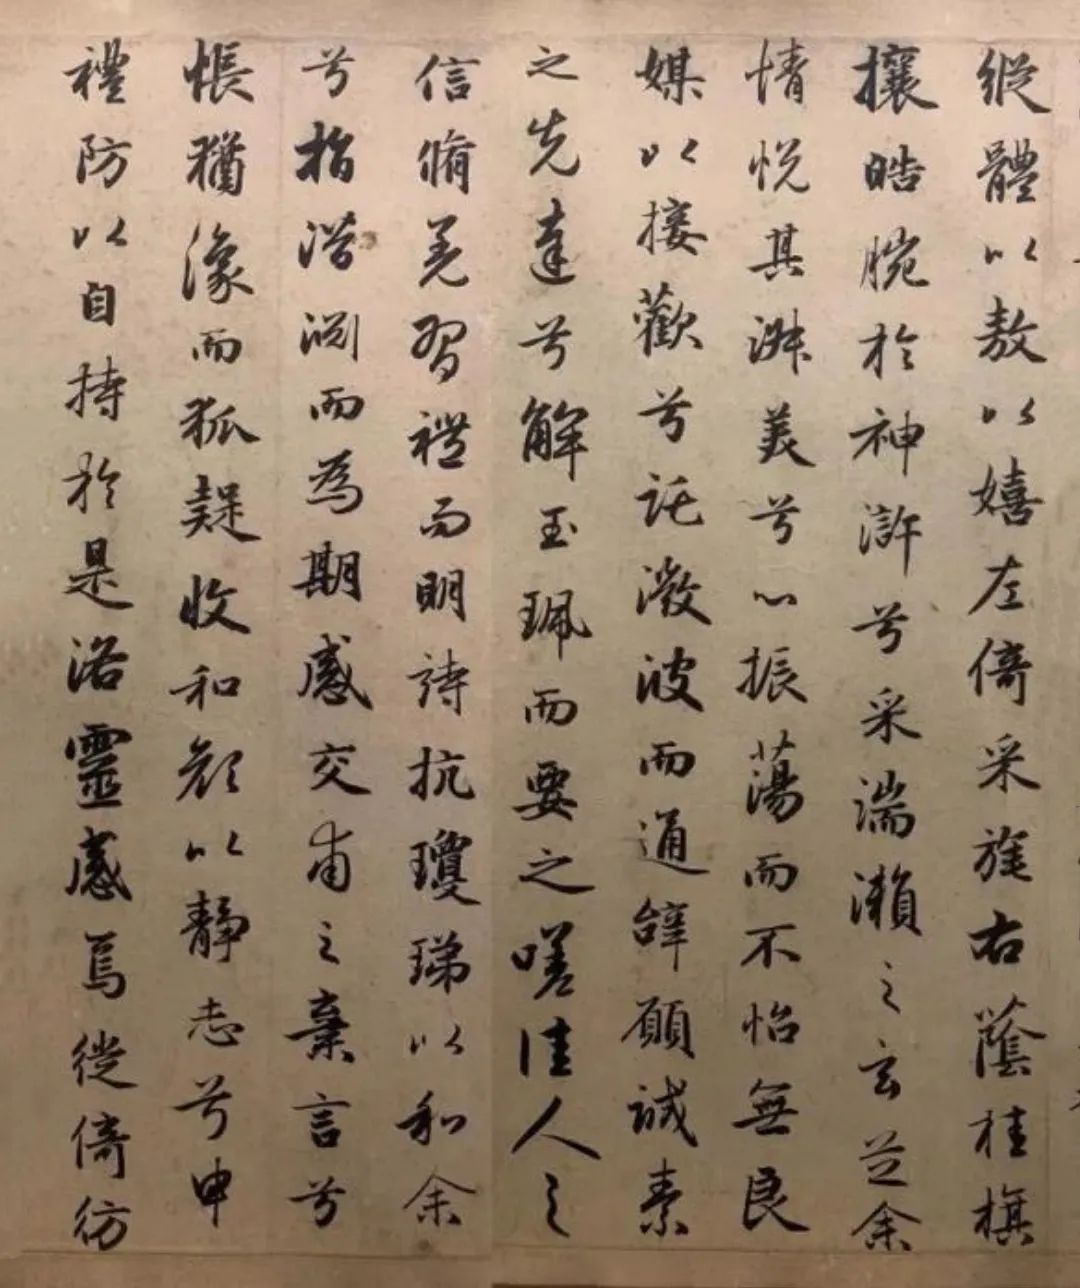 縱體以敖以嬉左倚采旄右蔭桂旗
攘皓腕於神滸兮采湍瀨之玄芝余
情悅其淑美兮心振蕩而不怡無良
媒以接歡兮託微波而通辭願誠素
之先達兮解玉珮而要之嗟佳人之
信脩羌習禮而明詩抗瓊珶以和余
兮指潛淵而為期感交甫之棄言兮
悵猶豫而狐疑收和顏以靜志兮申
禮防以自持於是洛靈感焉徙倚彷